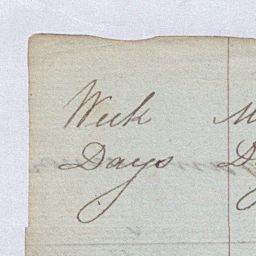 Week M
Days D